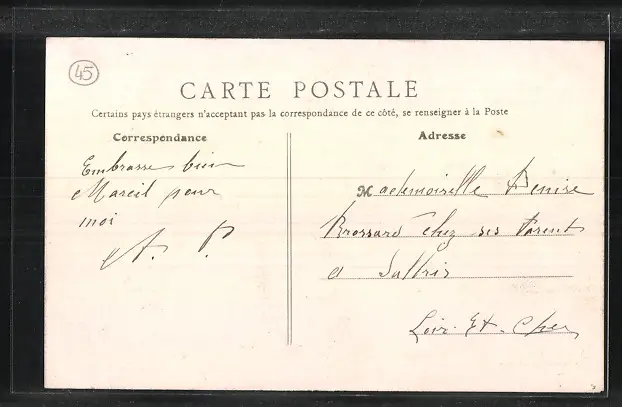 45
CARTE POSTALE
Certains pays étrangers n'acceptant pas la correspondance de ce côté, se renseigner à la Poste
Correspondance
Embrasse bien
Marcil pour
moi
A. P.
Adresse
Mademoiselle Denise
Brossard Chez ses Parents
a Salbris
Loir-Et-Cher